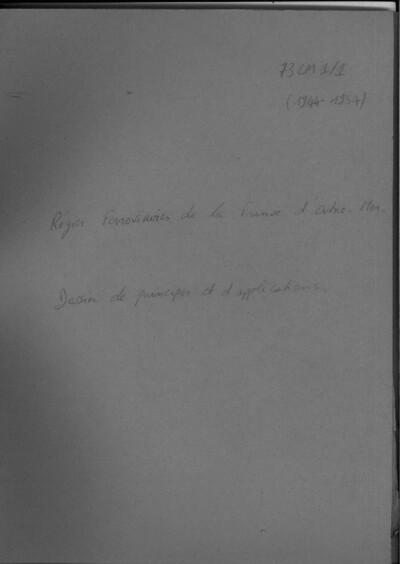 73 LM 1/1
(1944-1957)
Régies Ferroviaires de la France d'outre-Mer.
Dossier de principes et d'applications.